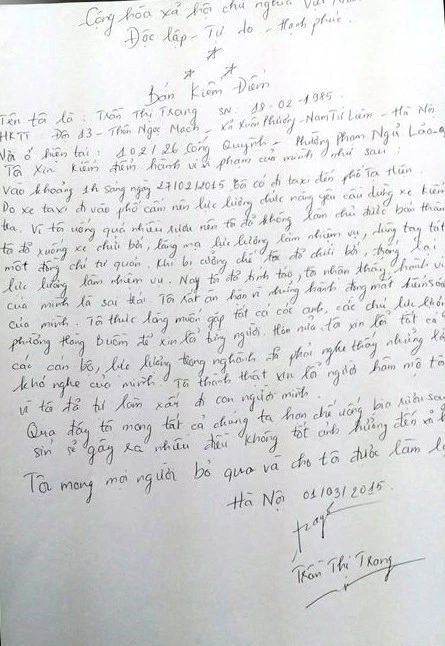 Cộng hòa xã hội chủ nghĩa Việt Nam
Độc lập - Tự do - Hạnh phúc.
Bản Kiểm Điểm
Tên tôi là: Trần Thị Trang SN: 18-02-1985.
HKTT Đội 13 - Thôn Ngọc Mạch - Xã Xuân Phương - Nam Từ Liêm - Hà Nội
Nơi ở hiện tại: 102/26 Cống Quỳnh - Phường Phạm Ngũ Lão
Tôi xin kiểm điểm hành vi vi phạm của mình như sau:
Vào khoảng 1h sáng ngày 27/02/2015 tôi có đi taxi đến phố Tạ Hiện.
Do xe taxi đi vào phố cấm nên lực lượng chức năng yêu cầu dừng xe kiểm
tra. Vì tôi uống quá nhiều rượu nên tôi đã không làm chủ được bản thân
tôi đã xuống xe chửi bới, lăng mạ lực lượng làm nhiệm vụ, dùng tay tát
một đồng chí tự quản. Khi bị cưỡng chế tôi đã chửi bới, chống lại
lực lượng làm nhiệm vụ. Nay tôi đã tỉnh táo, tôi nhận thấy hành vi
của mình là sai trái. Tôi rất ân hận vì những hành động mất kiểm soát
của mình. Tôi thực lòng muốn gặp tất cả các anh, các chú lực lượng
phường Hàng Buồm để xin lỗi từng người. Hơn nữa, tôi xin lỗi tất cả
các cán bộ, lực lượng trong nghành đã phải nghe thấy những lời
khó nghe của mình. Tôi thành thật xin lỗi người hâm mộ tôi
vì tôi đã tự làm xấu đi con người mình.
Qua đây tôi mong tất cả chúng ta hạn chế uống bia rượu say
sỉn sẽ gây ra nhiều điều không tốt ảnh hưởng đến xã hội
Tôi mong mọi người bỏ qua và cho tôi được làm lại
Hà Nội 01/03/2015.
Trang
Trần Thị Trang